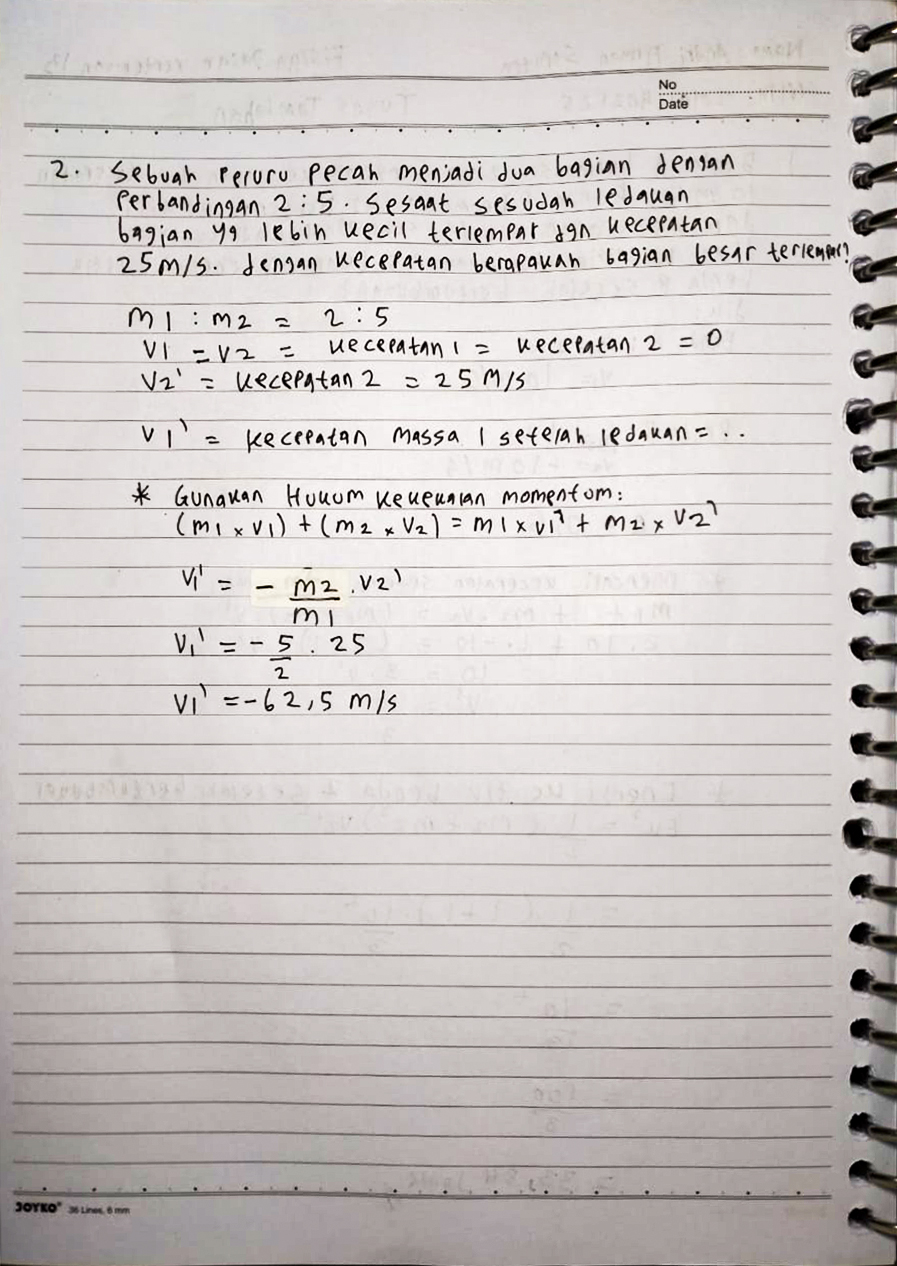 No
Date
2. Sebuah peluru pecah menjadi dua bagian dengan
perbandingan 2 : 5. Sesaat sesudah ledakan
bagian yg lebih kecil terlempar dgn kecepatan
25 m/s. dengan kecepatan berapakah bagian besar terlempar?
m1 : m2 = 2 : 5
V1 = V2 = kecepatan 1 = kecepatan 2 = 0
V2' = kecepatan 2 = 25 m/s
V1' = kecepatan massa 1 setelah ledakan = ..
* Gunakan Hukum kekekalan momentum:
(m1 x V1) + (m2 x V2) = m1 x V1' + m2 x V2'
V1' = - m2/m1 . V2'
V1' = - 5/2 . 25
V1' = -62,5 m/s
JOYKO® 36 Lines, 6 mm